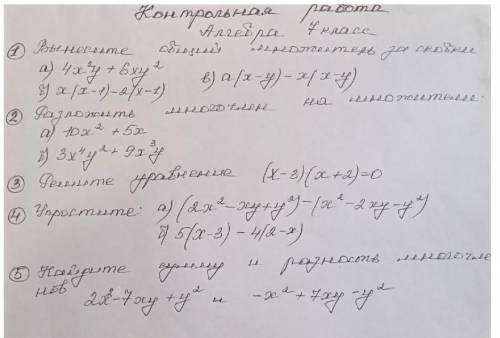 Контрольная работа
Алгебра 7 класс
① Вынесите общий множитель за скобки
а) 4x²y + 6xy² в) a(x-y) - x(x-y)
б) x(x-1) - 2(x-1)
② Разложить многочлен на множители:
а) 10x² + 5x
б) 3x⁴y² + 9x³y
③ Решите уравнение (x-3)(x+2)=0
④ Упростите: а) (2x²-xy+y²)-(x²-2xy-y²)
б) 5(x-3) - 4(2-x)
⑤ Найдите сумму и разность многочле
нов
2x²-7xy+y² и -x²+7xy-y²